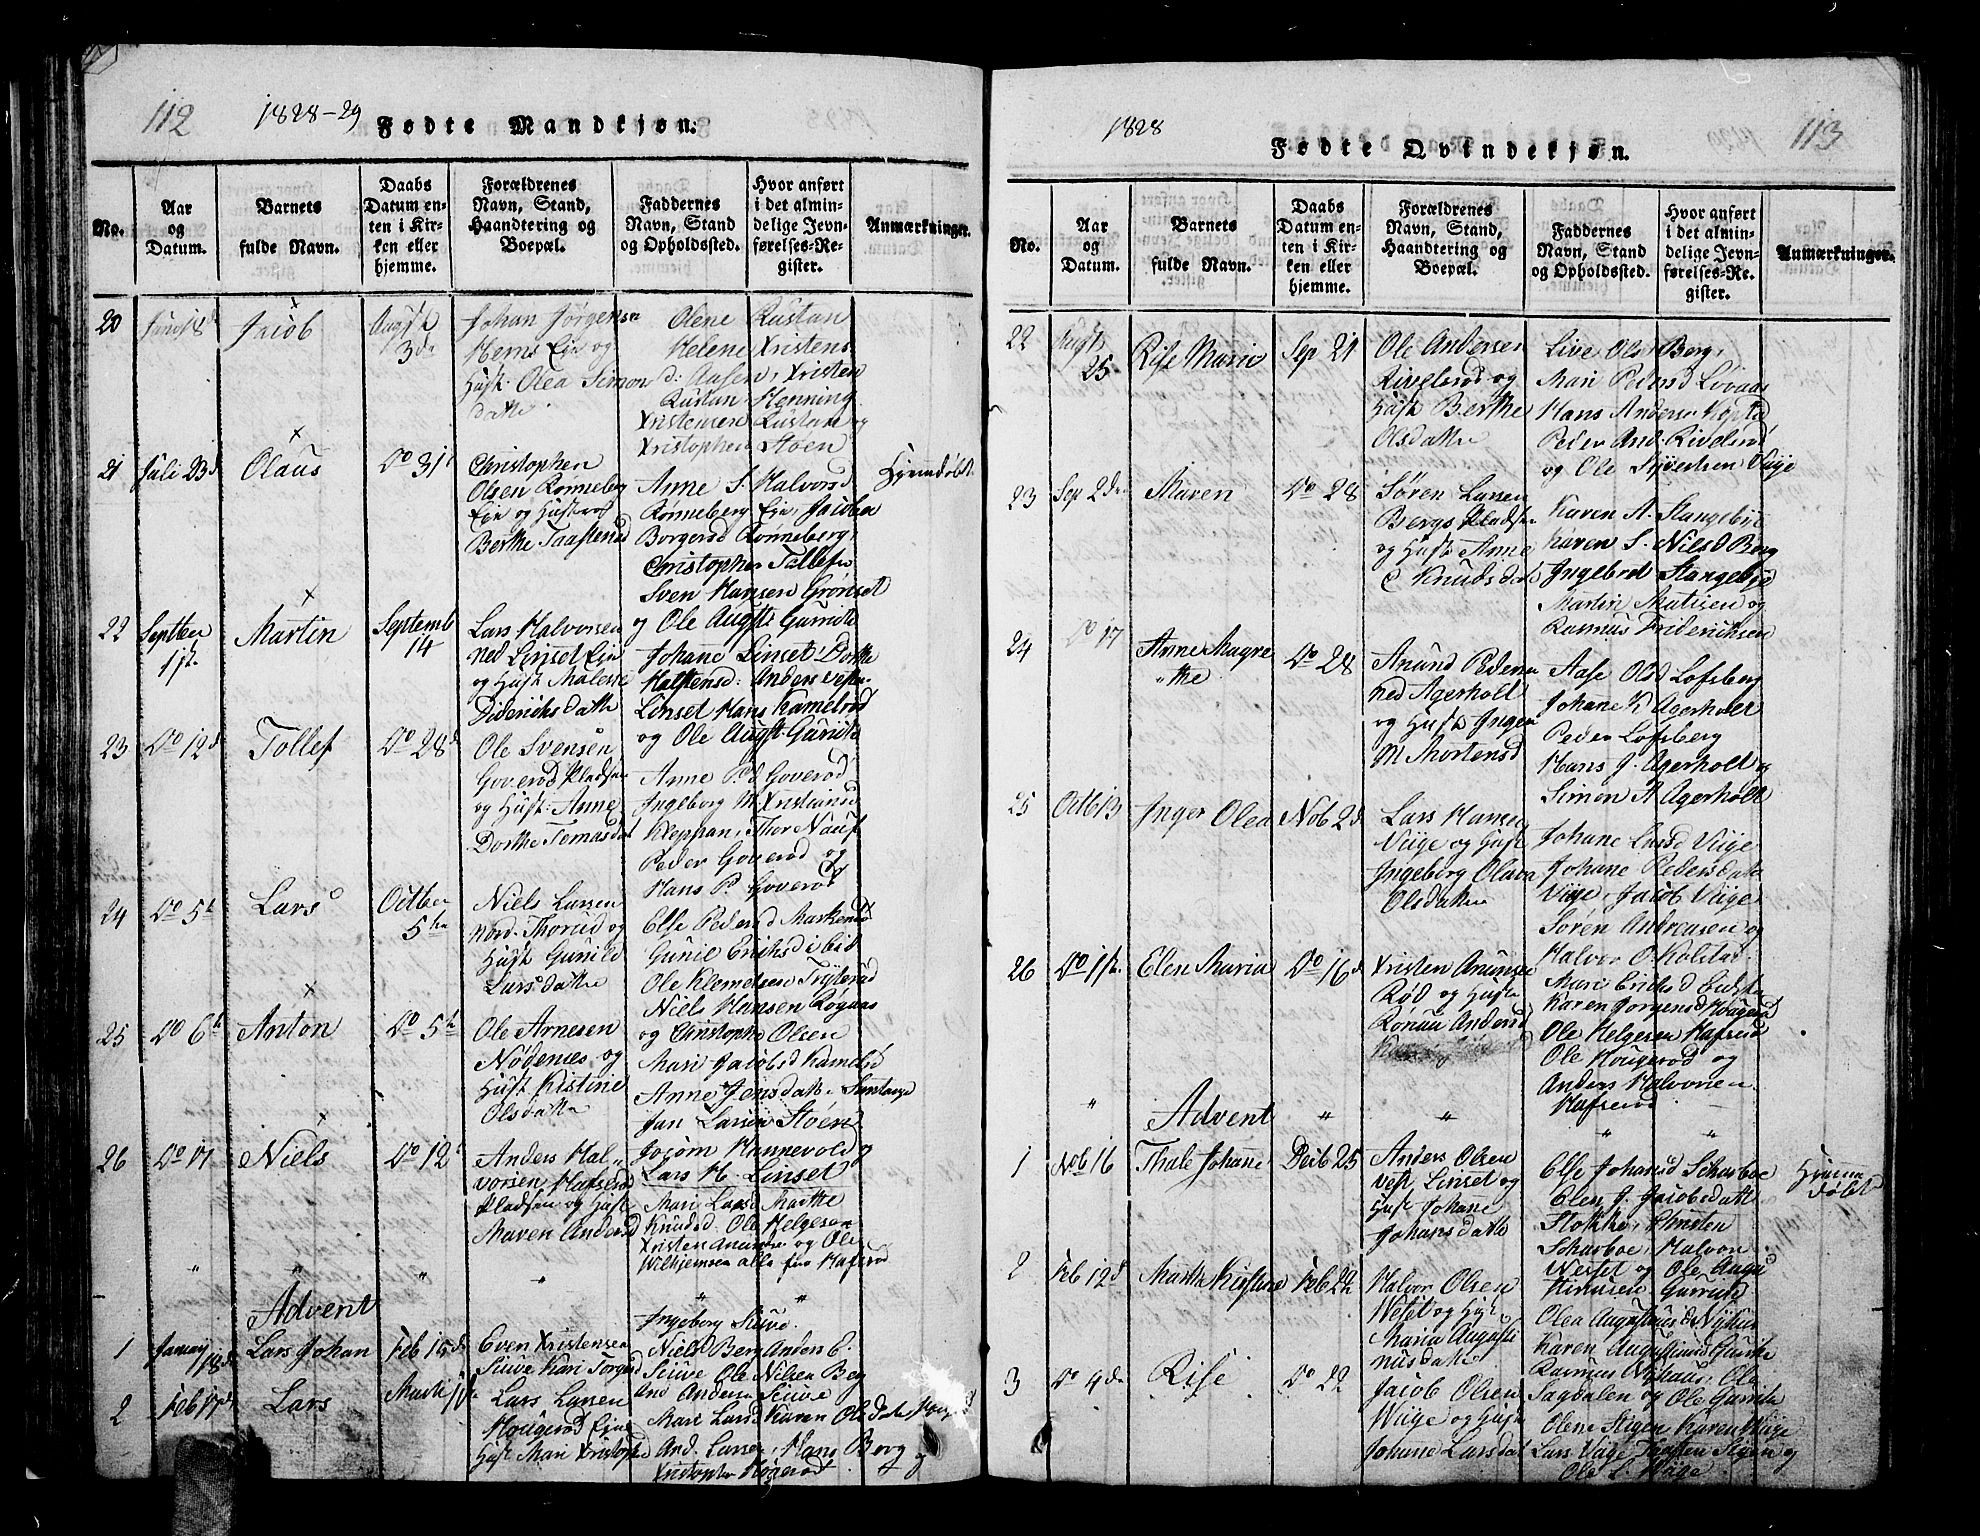 112
1828-29
Fødte Mandkjøn.
No.
Aar og Datum.
Barnets fulde Navn.
Daabs Datum enten i Kirken eller hjemme.
Forældrenes Navn, Stand, Haandtering og Boepæl.
Faddernes Navn, Stand og Opholdssted.
Hvor anført i det almindelige Jevnførelses-Register.
Anmærkninger.
20
Jacob
Augst 3de
Johan Jørgensen
Eje og
Hust. Olea Simons
datte
Olene Rustan
Helene Xristens
d: Aasen, Xristen
Rustan Henning
Xristensen Rustan og
Xristopher Støen
21
Juli 23d
Olaus
Do 31
Christopher
Olsen Rønneberg
Eje og Hustrue
Berthe Taaftesrød
Anne S. Halvorsd
Rønneberg Eje, Jacobea
Borgersd Rønneberg,
Christopher Tollefsen
Sven Hansen Grønset
og Ole Augsti Gurride
Hjemdøbt
22
Septber 1st
Martin
Septemb 14
Lars Halvorsen
ned Linset Eje
og Hust Malene
Dideriksdatte
Johane Linset, Dorthe
Halstensd: Anders
Linset Hans Kamelrød
og Ole Augst. Gurride
23
Do 12d
Tollef
Do 28d
Ole Svensen
Goverød Pladsen
og Hust: Anne
Dorthe Tomasdat
Anne Pd Goverød
Ingeborg M Xristiansd
Kleppan, Thor Nauf
Peder Goverød og
Hans P. Goverød
24
Do 5t
Lars
Octber 5te
Niels Larsen
nord. Thorud og
Hust Gunild
Larsdatte
Else Pedersd Markerud
Gunil Eriksd i bid
Ole Klemetsen
Niels Hansen Rognaas
og Christopher Olsen
25
Do 6t
Anton
Do 5t
Ole Arnesen
Nødenes og
Hust Kistine
Olsdatte
Mari Jacobsd Kamelrød
Anne Jensdatte
Jan Larsen Støen
Jocom Hannevold og
Lars H. Linset
26
Do 17
Niels
Do 12t
Anders Hal-
vorsen Hafsrød
Pladsen og Hust
Maren Andersd
Mari Larsd Marthe
Knudsd. Ole Helgesen
Xristen Anunsen og Ole
Wilhjemsen alle fra Hafsrød
Advent
1
January 18d
Lars Johan
Feb 15d
Even Xristensen
Siuve Kari Torgersd
Ingeborg Siuve
Niels Berg Anders E.
Siuve Ole Nilsen Berg
And Andersen Siuve
2
Feb 17d
Lars
Lars Larsen
Hougerød Eje
Hust Mari Xristophd
Mari Larsd Karen Olsdatte
And. Larsen, Hans Berg og
Xristopher Høgerød
1828
113
Fødte Qvindekjøn.
No.
Aar og Datum.
Barnets fulde Navn.
Daabs Datum enten i Kirken eller hjemme.
Forældrenes Navn, Stand, Haandtering og Boepæl.
Faddernes Navn, Stand og Opholdssted.
Hvor anført i det almindelige Jevnførelses-Register.
Anmærkninger.
22
Augst 25
Rise Marie
Sep 21
Ole Andersen
Rivelsrød og
Hust Berthe
Olsdatte
Live Olsd Berg,
Mari Pedersd Lovaas
Hans Andersen
Peder And. Rivelsrød
og Ole Syvertsen Viige
23
Sep 2de
Maren
Do 28
Søren Larsen
Bergs Pladsen
og Hust Anne
Knudsdat
Karen A. Stangebye
Karen S. Niels Berg
Ingebret Stangebye
Martin Matisen og
Rasmus Frideriksen
24
Do 17
Anne Magre
the
Do 28
Anund Pedersen
ned Agerholt
og Hust Inger
M Mortensd
Aase Olsd Lofsberg
Johane K Agerholt
Peder Lofsberg
Hans J. Agerholt og
Simon A Agerholt
25
Octb 13
Inger Olea
Nob 2d
Lars Hansen
Viige og Hust
Ingeborg Olava
Olsdatte
Johane Larsd Viige
Johane Pedersdatte
Viige, Jacob Viige
Søren Andreasen og
Halvor O. Kolstad
26
Do 1st
Elen Maria
Do 16d
Xristen Anunsen
Rød og Hust
Rønau Andersd
Mari Eriksd
Karen Jorgensd Hougerød
Ole Helgesen Hafsrød
Ole Hougerød og
Anders Halvorsen
Hafsrød
Advent
1
Nob 16
Thale Johane
Decb 25
Anders Olsen
vest Linset og
Hust Johane
Johansdatte
Else Johansd Scharboe
Elen J. Jacobsdatt
Stokke, Christen
Scharboe, Halvor
Westet og Ole Augu
stinusen Gurride
Hjemme
døbt
2
Feb 12d
Marthe Kistine
Feb 22
Halvor Olsen
Westet og Hust
Maria Augusti
nusdatte
Olea Augustinusd Nyhus
Karen Augustinusd Gurride
Rasmus Nyhaus, Ole
Sagdalen og Ole Gurride
3
Do 4de
Rise
Do 22
Jacob Olsen
Wiige og Hust
Johane Larsdat
Olene Stigen Karen Wiige
Lars Viige Torsten Stigen og
Ole L. Wiige